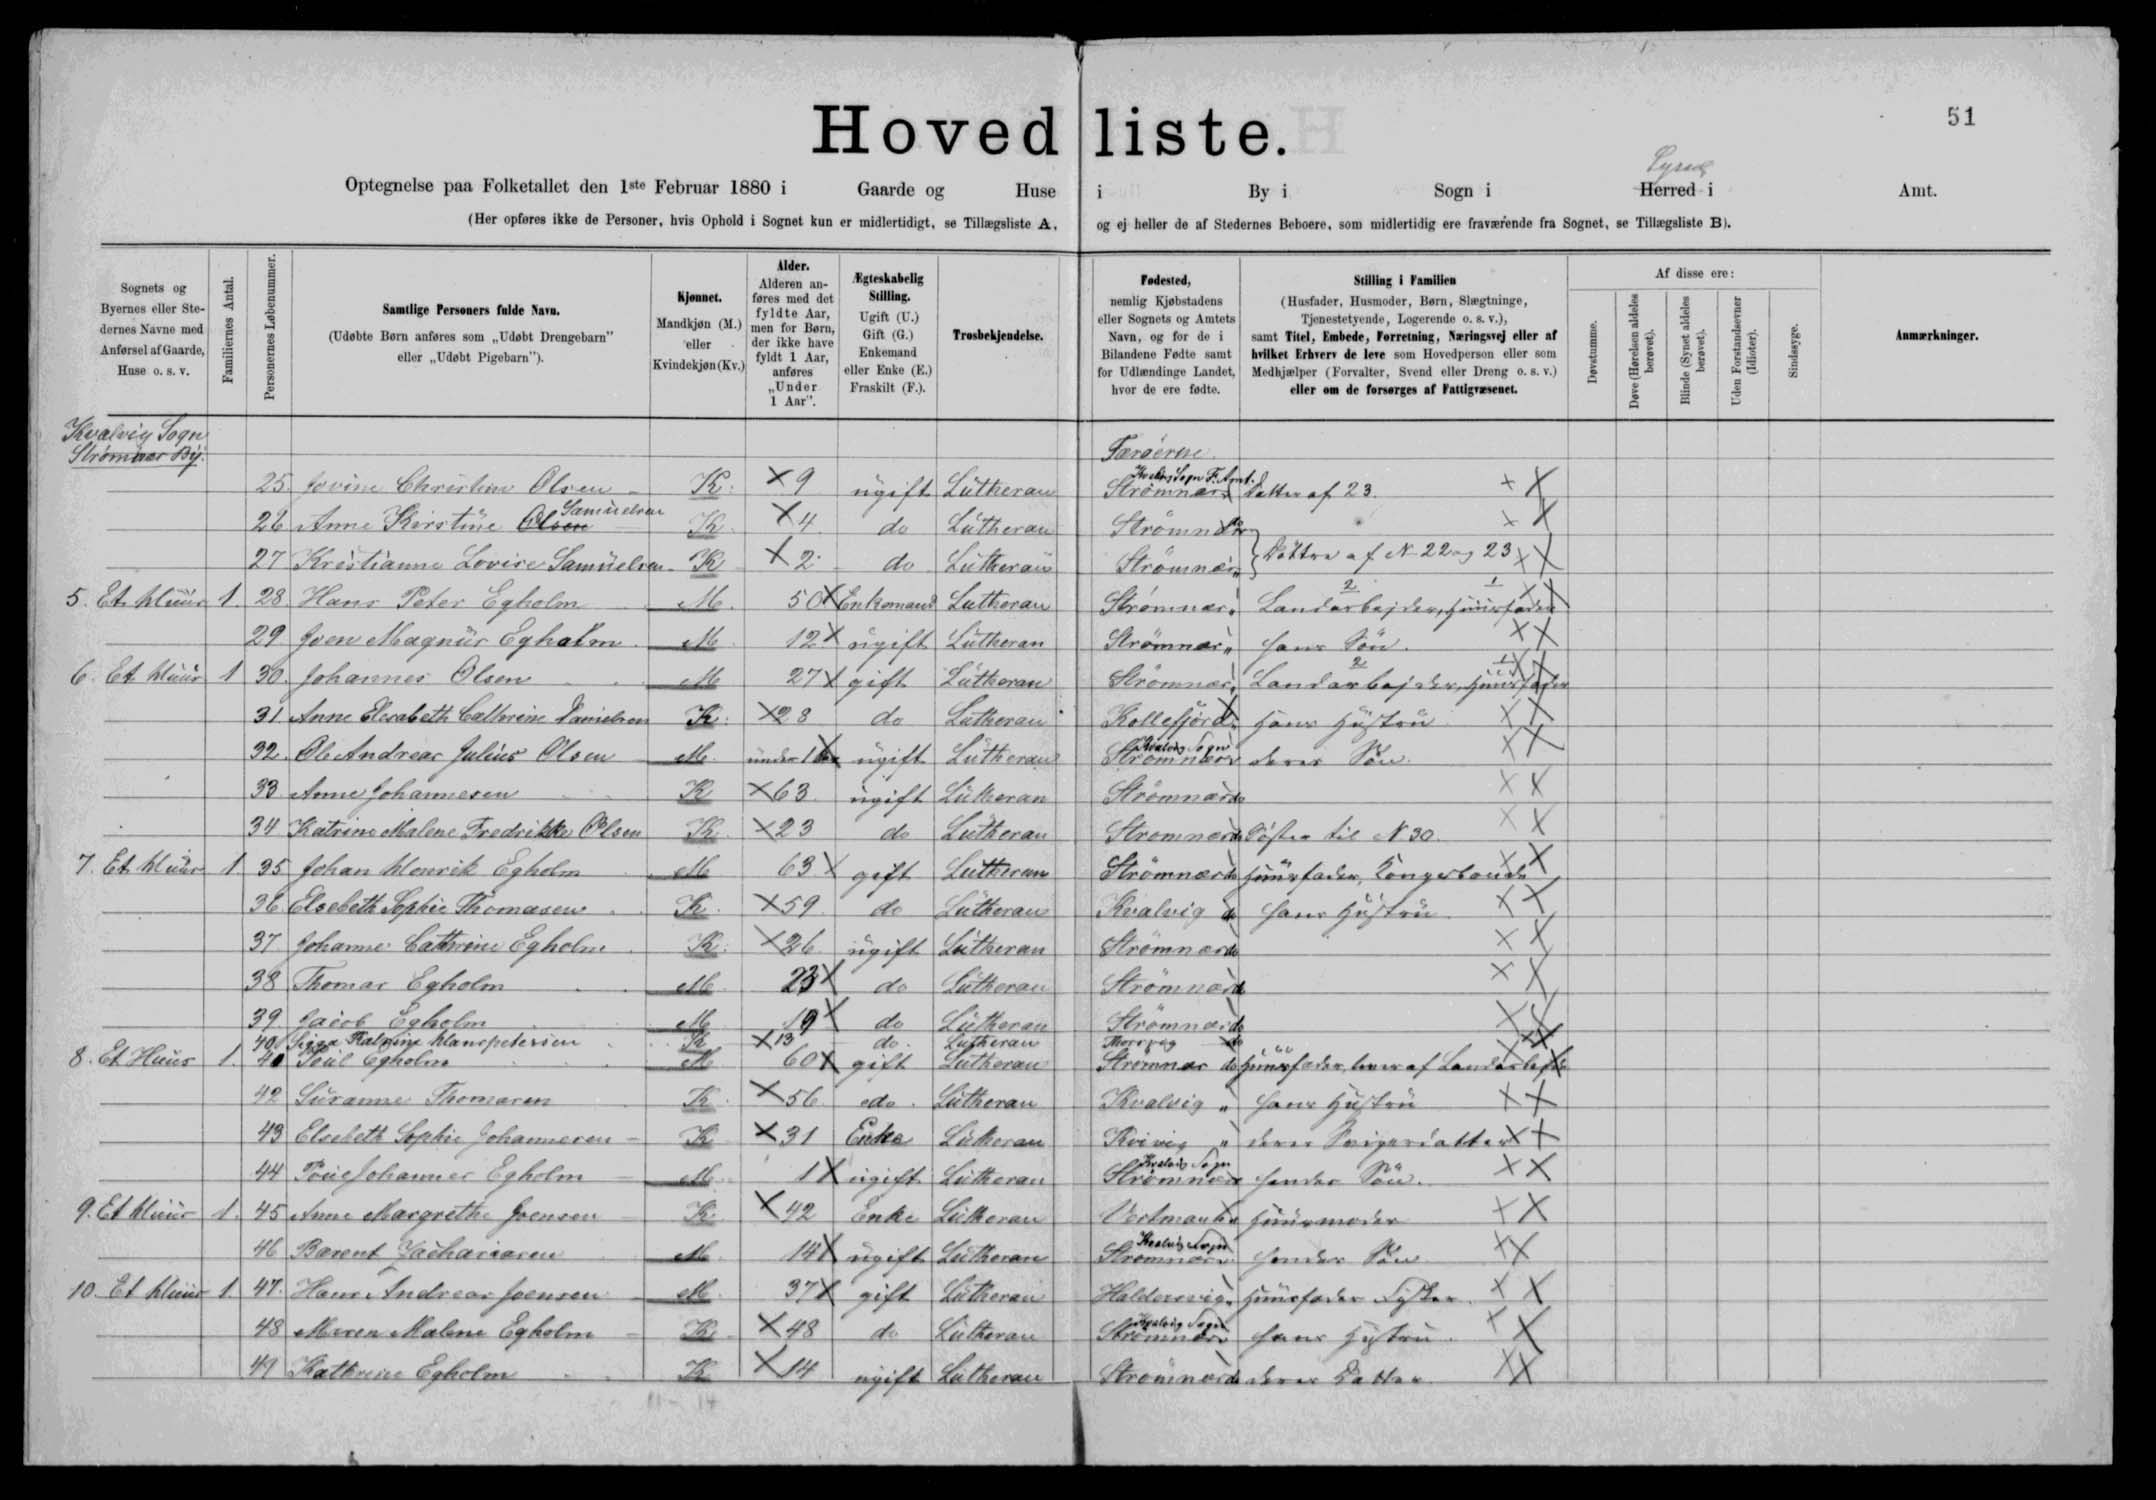 51
Hovedliste.
Syssel
Optegnelse paa Folketallet den 1ste Februar 1880 i Gaarde og Huse i By i Sogn i Herred i Amt.
(Her opføres ikke de Personer, hvis Ophold i Sognet kun er midlertidigt, se Tillægsliste A, og ej heller de af Stedernes Beboere, som midlertidig ere fraværende fra Sognet, se Tillægsliste B).
Sognets og Byernes eller Stedernes Navne med Anførsel af Gaarde, Huse o. s. v.
Familiernes Antal.
Personernes Løbenummer.
Samtlige Personers fulde Navn.
(Udøbte Børn anføres som „Udøbt Drengebarn" eller „Udøbt Pigebarn").
Kjønnet.
Mandkjøn (M.) eller Kvindekjøn (Kv.)
Alder.
Alderen anføres med det fyldte Aar, men for Børn, der ikke have fyldt 1 Aar, anføres „Under 1 Aar".
Ægteskabelig Stilling.
Ugift (U.) Gift (G.) Enkemand eller Enke (E.) Fraskilt (F.).
Trosbekjendelse.
Fødested,
nemlig Kjøbstadens eller Sognets og Amtets Navn, og for de i Bilandene Fødte samt for Udlændinge Landet, hvor de ere fødte.
Stilling i Familien
(Husfader, Husmoder, Børn, Slægtninge, Tjenestetyende, Logerende o. s. v.),
samt Titel, Embede, Forretning, Næringsvej eller af hvilket Erhverv de leve som Hovedperson eller som Medhjælper (Forvalter, Svend eller Dreng o. s. v.) eller om de forsørges af Fattigvæsenet.
Af disse ere:
Døvstumme.
Døve (Hørelsen aldeles berøvet).
Blinde (Synet aldeles berøvet).
Uden Forstandsevner (Idioter).
Sindssyge.
Anmærkninger.
Kvalvig Sogn
Strömnæs By. Færöerne.
25. Jovine Christine Olsen K. 9 ugift Lutheran Strömnæs Kvalvig Sogn F. Amt. Datter af 23.
26 Anne Kirstine Olsen Samuelsen K. 4 do Lutheran Strömnæs do
27 Kristianne Lovise Samuelsen K 2 do Lutheran Strömnæs „ Döttre af N 22 og 23
5. Et Huus 1. 28. Hans Peter Egholm M. 50 Enkemand Lutheran Strömnæs „ Landarbejder, Huusfader
29 Joen Magnus Egholm M 12 ugift Lutheran Strömnæs „ hans Sön.
6. Et Huus 1 30. Johannes Olsen M 27 gift Lutheran Strömnæs „ Landarbejder, Huusfader
31. Anne Elesabeth Cathrine Danielsen K. 28 do Lutheran Kollefjörd „ Hans Hustru
32. Ole Andreas Julius Olsen M. under 1 Aar ugift Lutheran Strömnæs Kvalvig Sogn deres Sön.
33 Anne Johannesen K 63 ugift Lutheran Strömnæs do
34 Katrine Malene Fredrikke Olsen K. 23 do Lutheran Strömnæs do Söster til N 30.
7. Et Huus 1 35 Johan Henrik Egholm M 63 gift Lutheran Strömnæs do Huusfader, Kongsbonde
36 Elsebeth Sophie Thomasen K. 59 do Lutheran Kvalvig do hans Hustru
37 Johanne Cathrine Egholm K. 26 ugift Lutheran Strömnæs do
38 Thomas Egholm M 23 do Lutheran Strömnæs do
39 Jacob Egholm M 19 do Lutheran Strömnæs do
40 Katrine Hanspetersen K 13 do. Lutheran do
8. Et Huus 1. 41 Poul Egholm M 60 gift Lutheran Strömnæs do Huusfader, lever af Landarbejde
42 Susanne Thomasen K. 56 do. Lutheran Kvalvig „ hans Hustru
43 Elsebeth Sophie Johannesen K 31 Enke Lutheran Kvivig „ deres Svigerdatter
44 Poul Johannes Egholm M. 1 ugift Lutheran Strömnæs Kvalvig Sogn hendes Sön.
9. Et Huus 1. 45 Anne Margrethe Joensen K. 42 Enke Lutheran Vestmanhn Huusmoder
46 Barent Zachariasen M. 14 ugift Lutheran Strömnæs Kvalvig Sogn hendes Sön
10. Et Huus 1. 47. Hans Andreas Joensen M. 37 gift Lutheran Haldersvig „ Huusfader Fisker.
48 Maren Malene Egholm K 48 do Lutheran Strömnæs Kvalvig Sogn hans Hustru.
49 Kathrine Egholm K 14 ugift Lutheran Strömnæs do deres Datter.